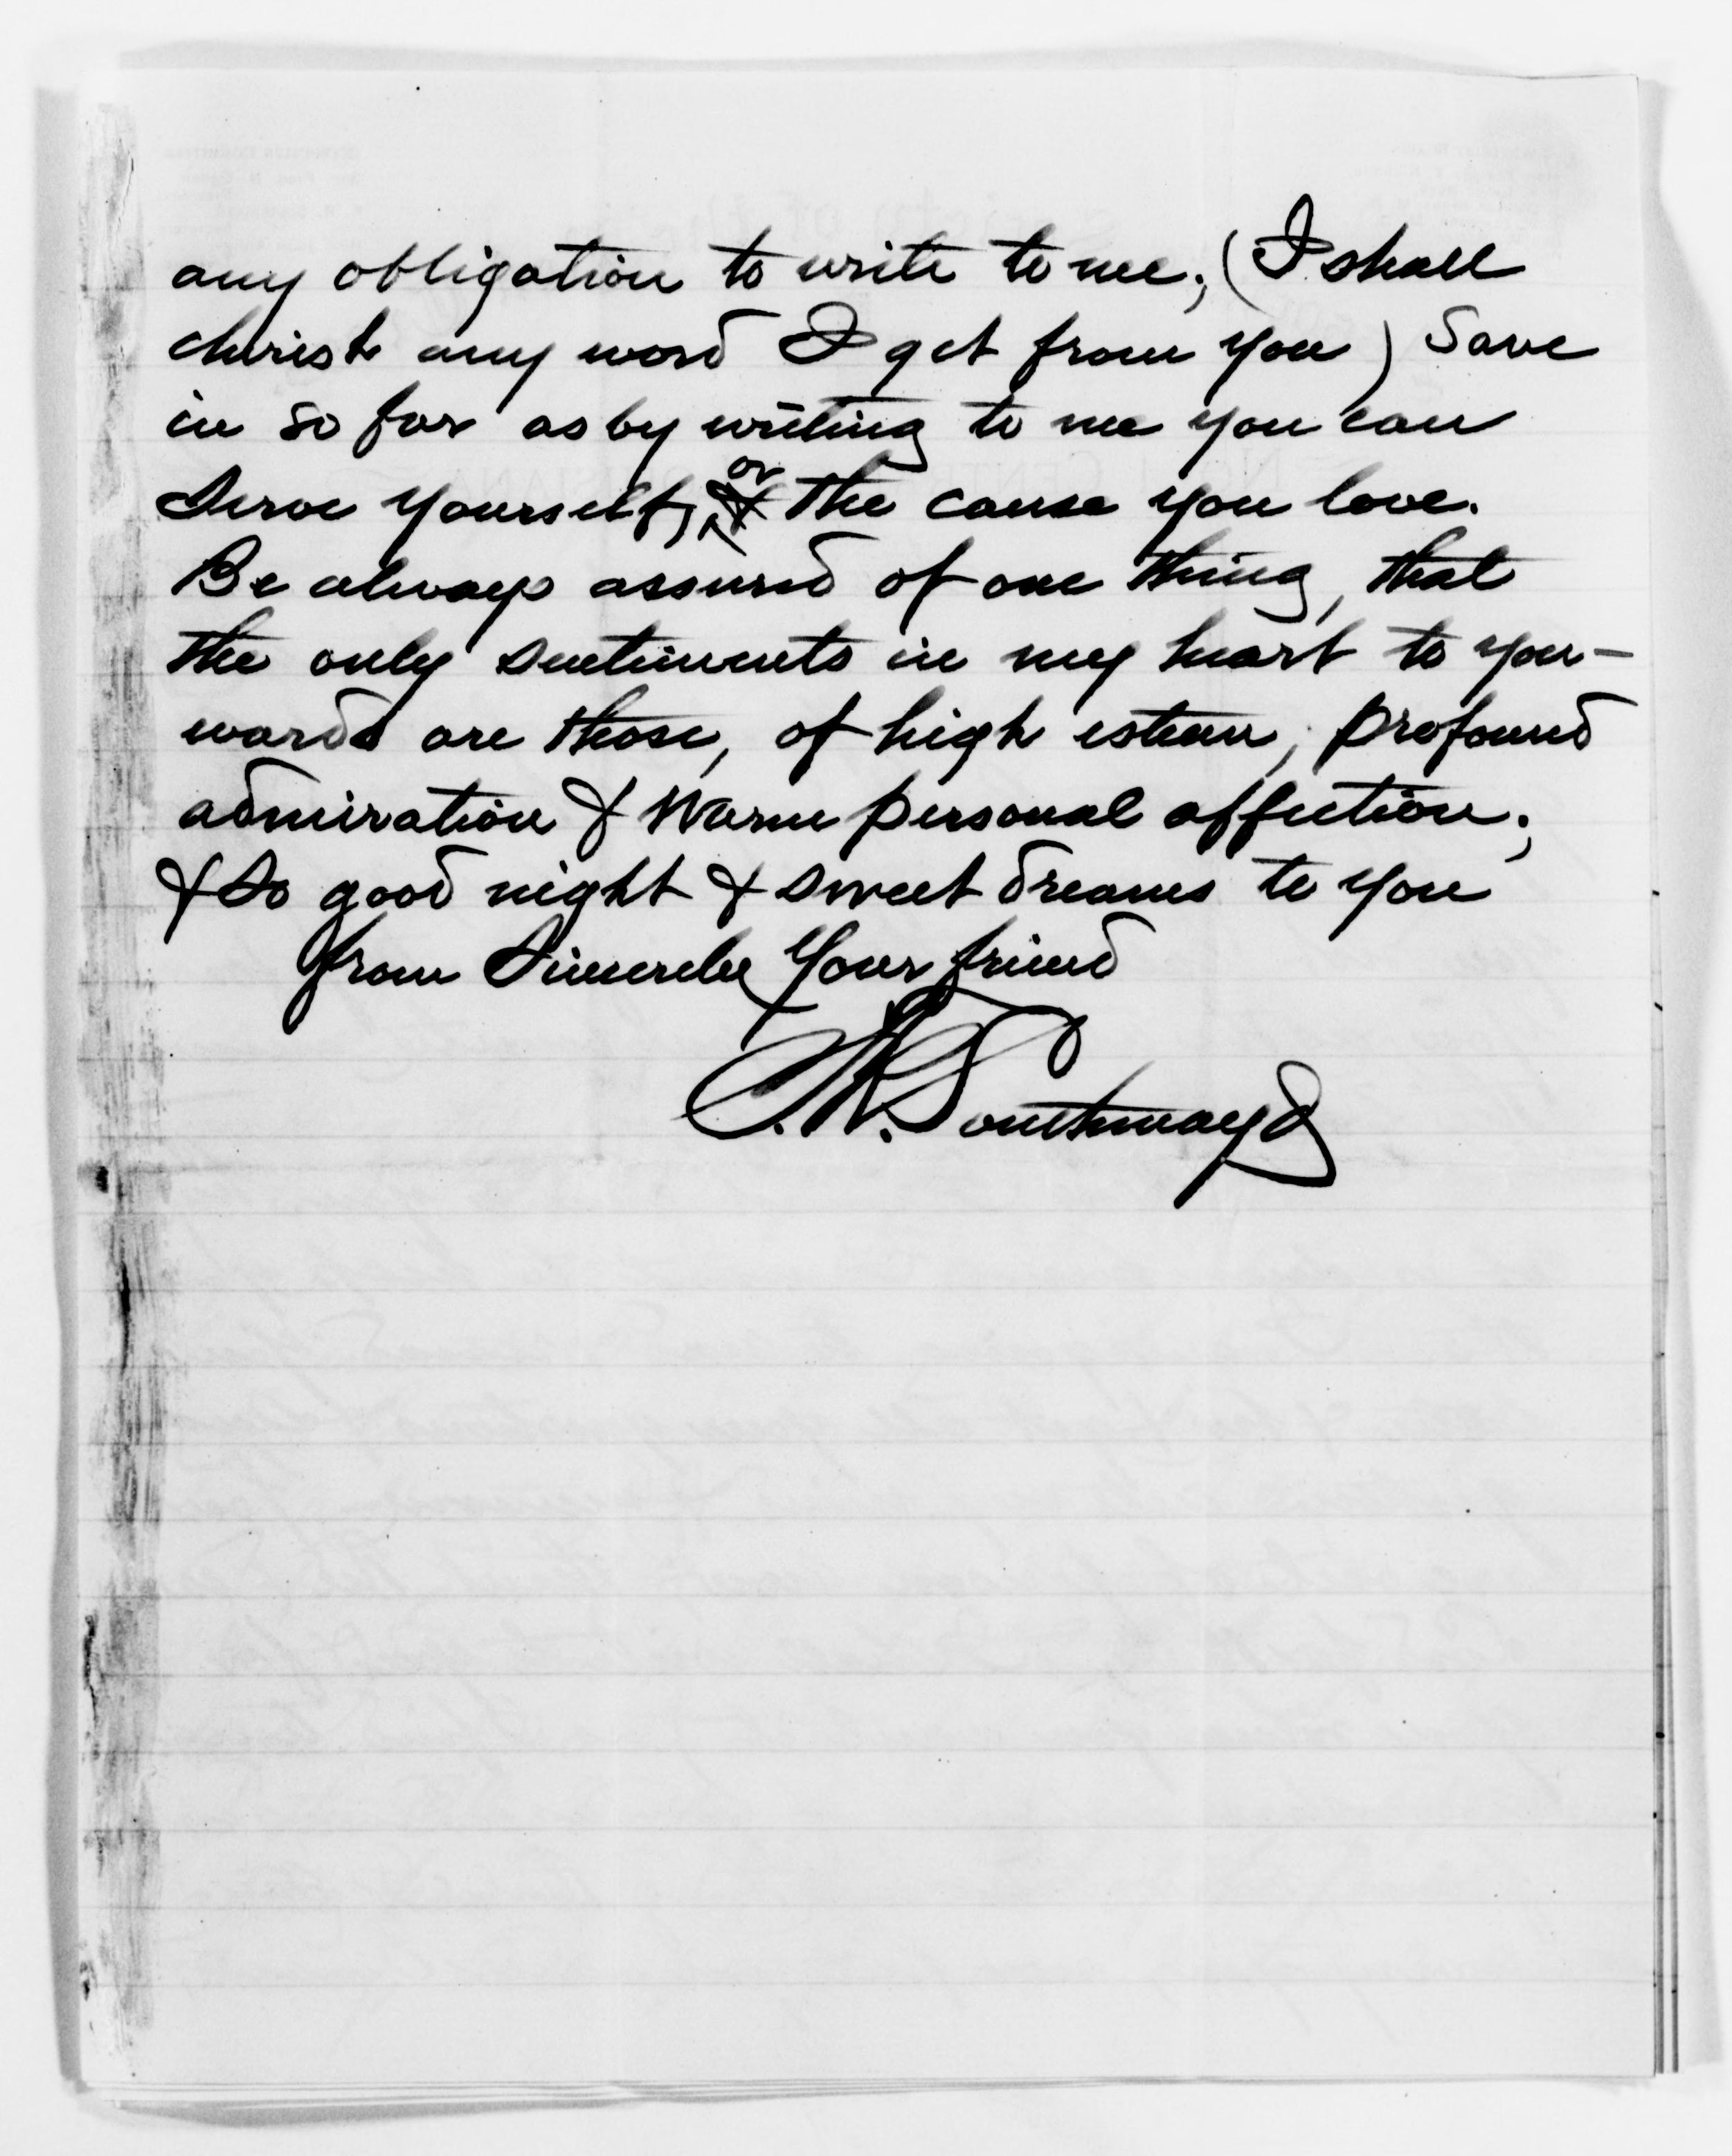 any obligation to write to me; (I shall
cherish any word I get from you) Save
in so far as by writing to me you can
serve yourself, or the cause you love.
Be always assured of one thing, that
the only sentiments in my heart to you-
wards are those, of high esteem, profound
admiration & warm personal affection;
& so good night & sweet dreams to you
from Sincerely Your friend
C. W. Southwayd